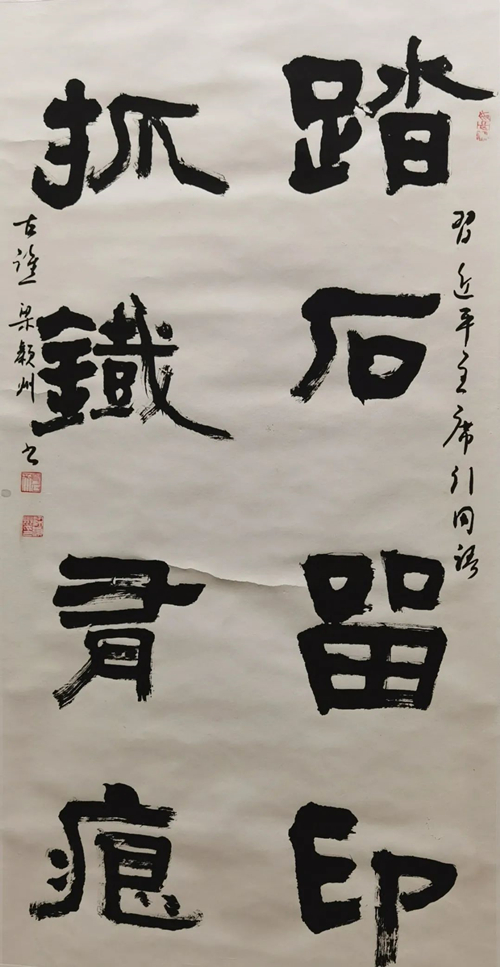 踏石留印
習近平主席引用語
抓鐵有痕
古譙梁穎州书